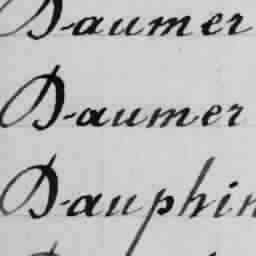 Daumer
Daumer
Dauphin